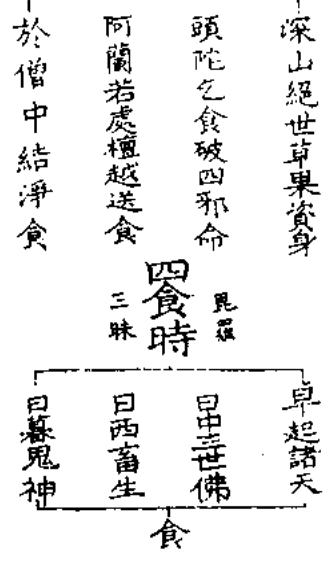 深山絕世草果資身
頭陀乞食破四邪命
阿蘭若處檀越送食
於僧中結淨食
四食時
毘羅
三昧
早起諸天
日中三世佛
日西畜生
日暮鬼神
食